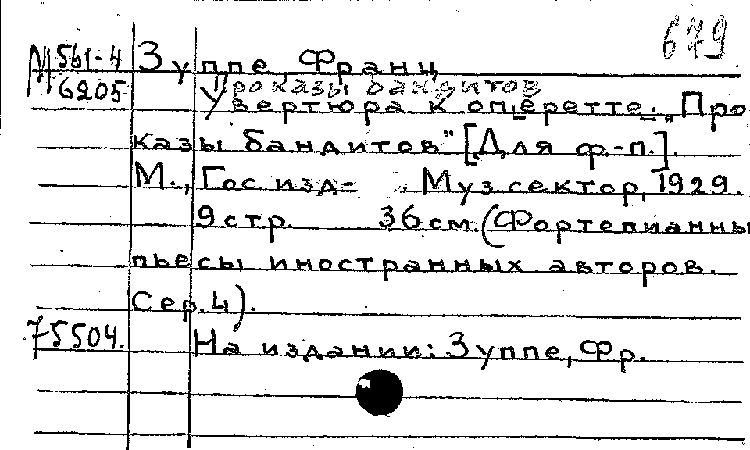 679
М 561-4 Зуппе, Франц
6205 Проказы бандитов
Увертюра к оперетте: „Про
казы бандитов" [Для ф.-п.].
М., Гос изд- Муз сектор, 1929.
9 стр. 36 см. (Фортепианны
пьесы иностранных авторов.
Сер. 4).
75504. На издании: Зуппе, Фр.